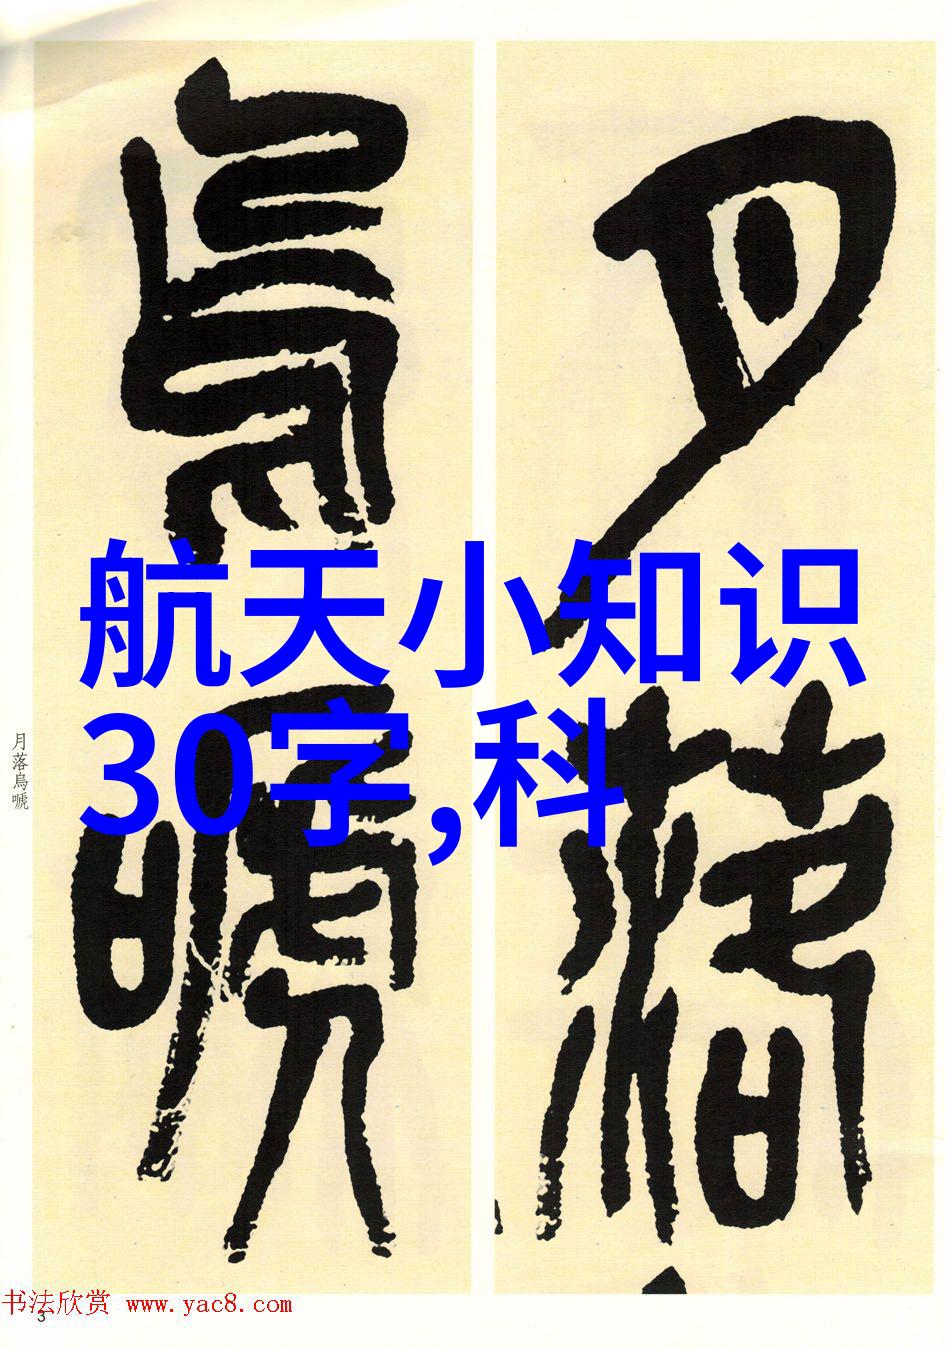 月落
烏嗁
航天小知识
30字,科
月落烏嗁
书法欣赏 www.yac8.com
3